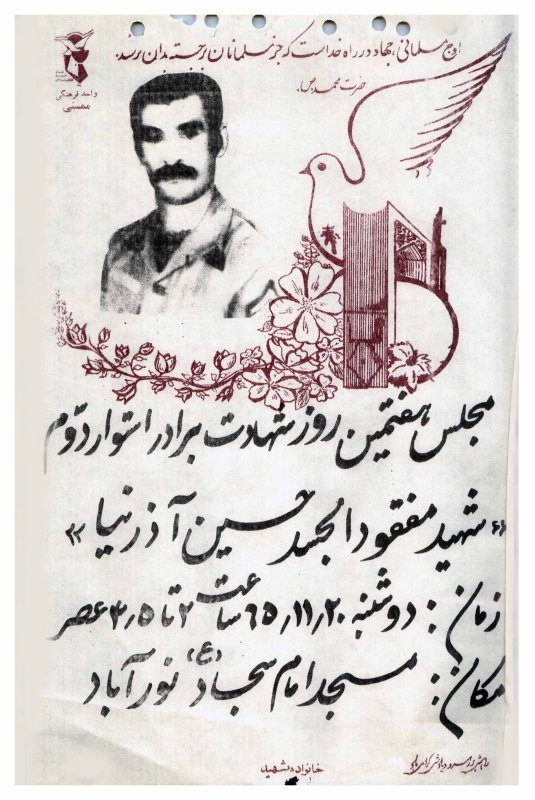 اوج مسلمانی، جهاد در راه خداست که جز مسلمانان برجسته بدان نرسند.
حضرت محمد «ص»
واحد فرهنگی
ممسنی
مجلس هفتمین روز شهادت برادر استوار دوم
«شهید مفقود الجسد حسین آذرنیا»
زمان: دوشنبه ۶۵٫۱۱٫۲۰ ساعت ۲ تا ۳٫۵ عصر
مکان: مسجد امام سجاد (ع) نورآباد
خانواده شهید